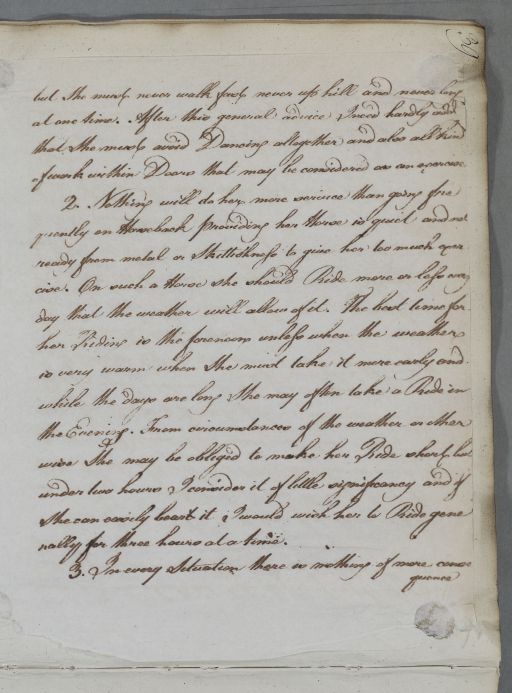 but She must never walk fast never up hill and never long
at one time. After this general advice I need hardly add
that She must avoid Dancing altogether and also all kind
of work within Doors that may be considered as an exercise
2. Nothing will do her more service than going fre
quently on Horseback providing her Horse is quiet and not
ready from metal or Skittishness to give her too much exer
cise. On such a Horse she should Ride more or less every
day that the weather will allow of it. The best time for
her Riding is the forenoon unless when the weather
is very warm when She must take it more early and
while the days are long She may often take a Ride in
the Evening. From circumstances of the weather or other
wise She may be obliged to make her Ride short but
under two hours I consider it of little significancy and if
She can easily bear it I would wish her to Ride gene
rally for three hours at a time.
3. In every Situation there is nothing of more conse
quence